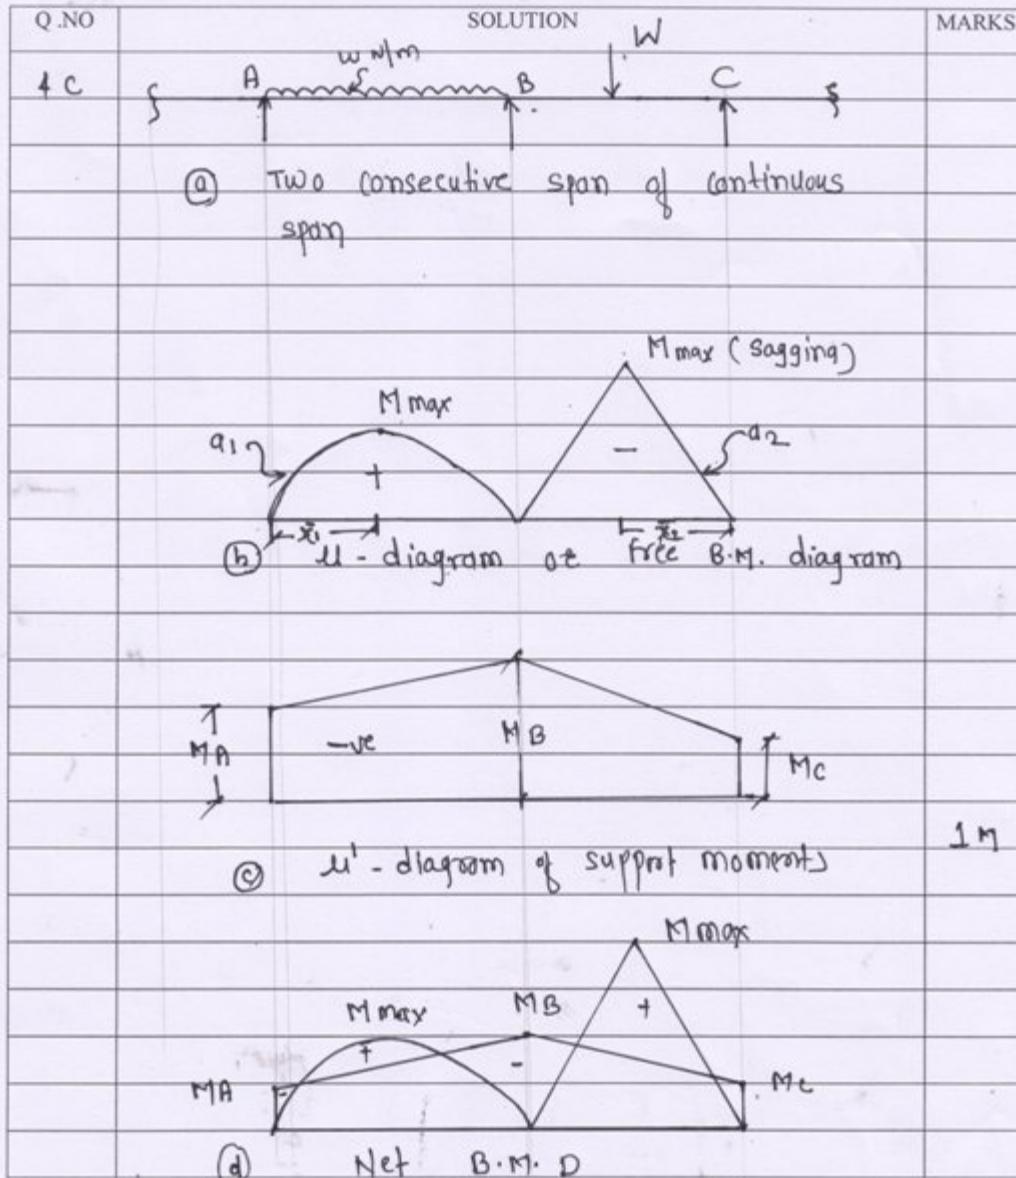 Q.NO SOLUTION MARKS
w N/m W
4 C A B C
ⓐ Two consecutive span of continuous
span
M max (sagging)
M max
a1 a2
+ −
x̄1 x̄2
ⓑ μ - diagram or free B.M. diagram
MA −ve MB Mc
1 M
ⓒ μ' - diagram of support moments
M max
M max MB +
+ −
MA - Mc
ⓓ Net B.M.D